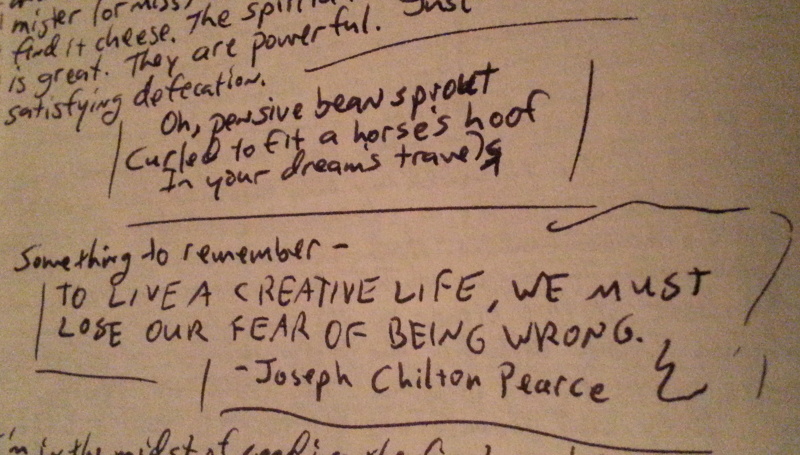 mister (or miss)
find it cheese. The Just
is great. They are powerful.
satisfying defecation.
Oh, pensive bean sprout
Curled to fit a horse's hoof
In your dream's travels
Something to remember -
TO LIVE A CREATIVE LIFE, WE MUST
LOSE OUR FEAR OF BEING WRONG.
- Joseph Chilton Pearce
I'm in the midst of